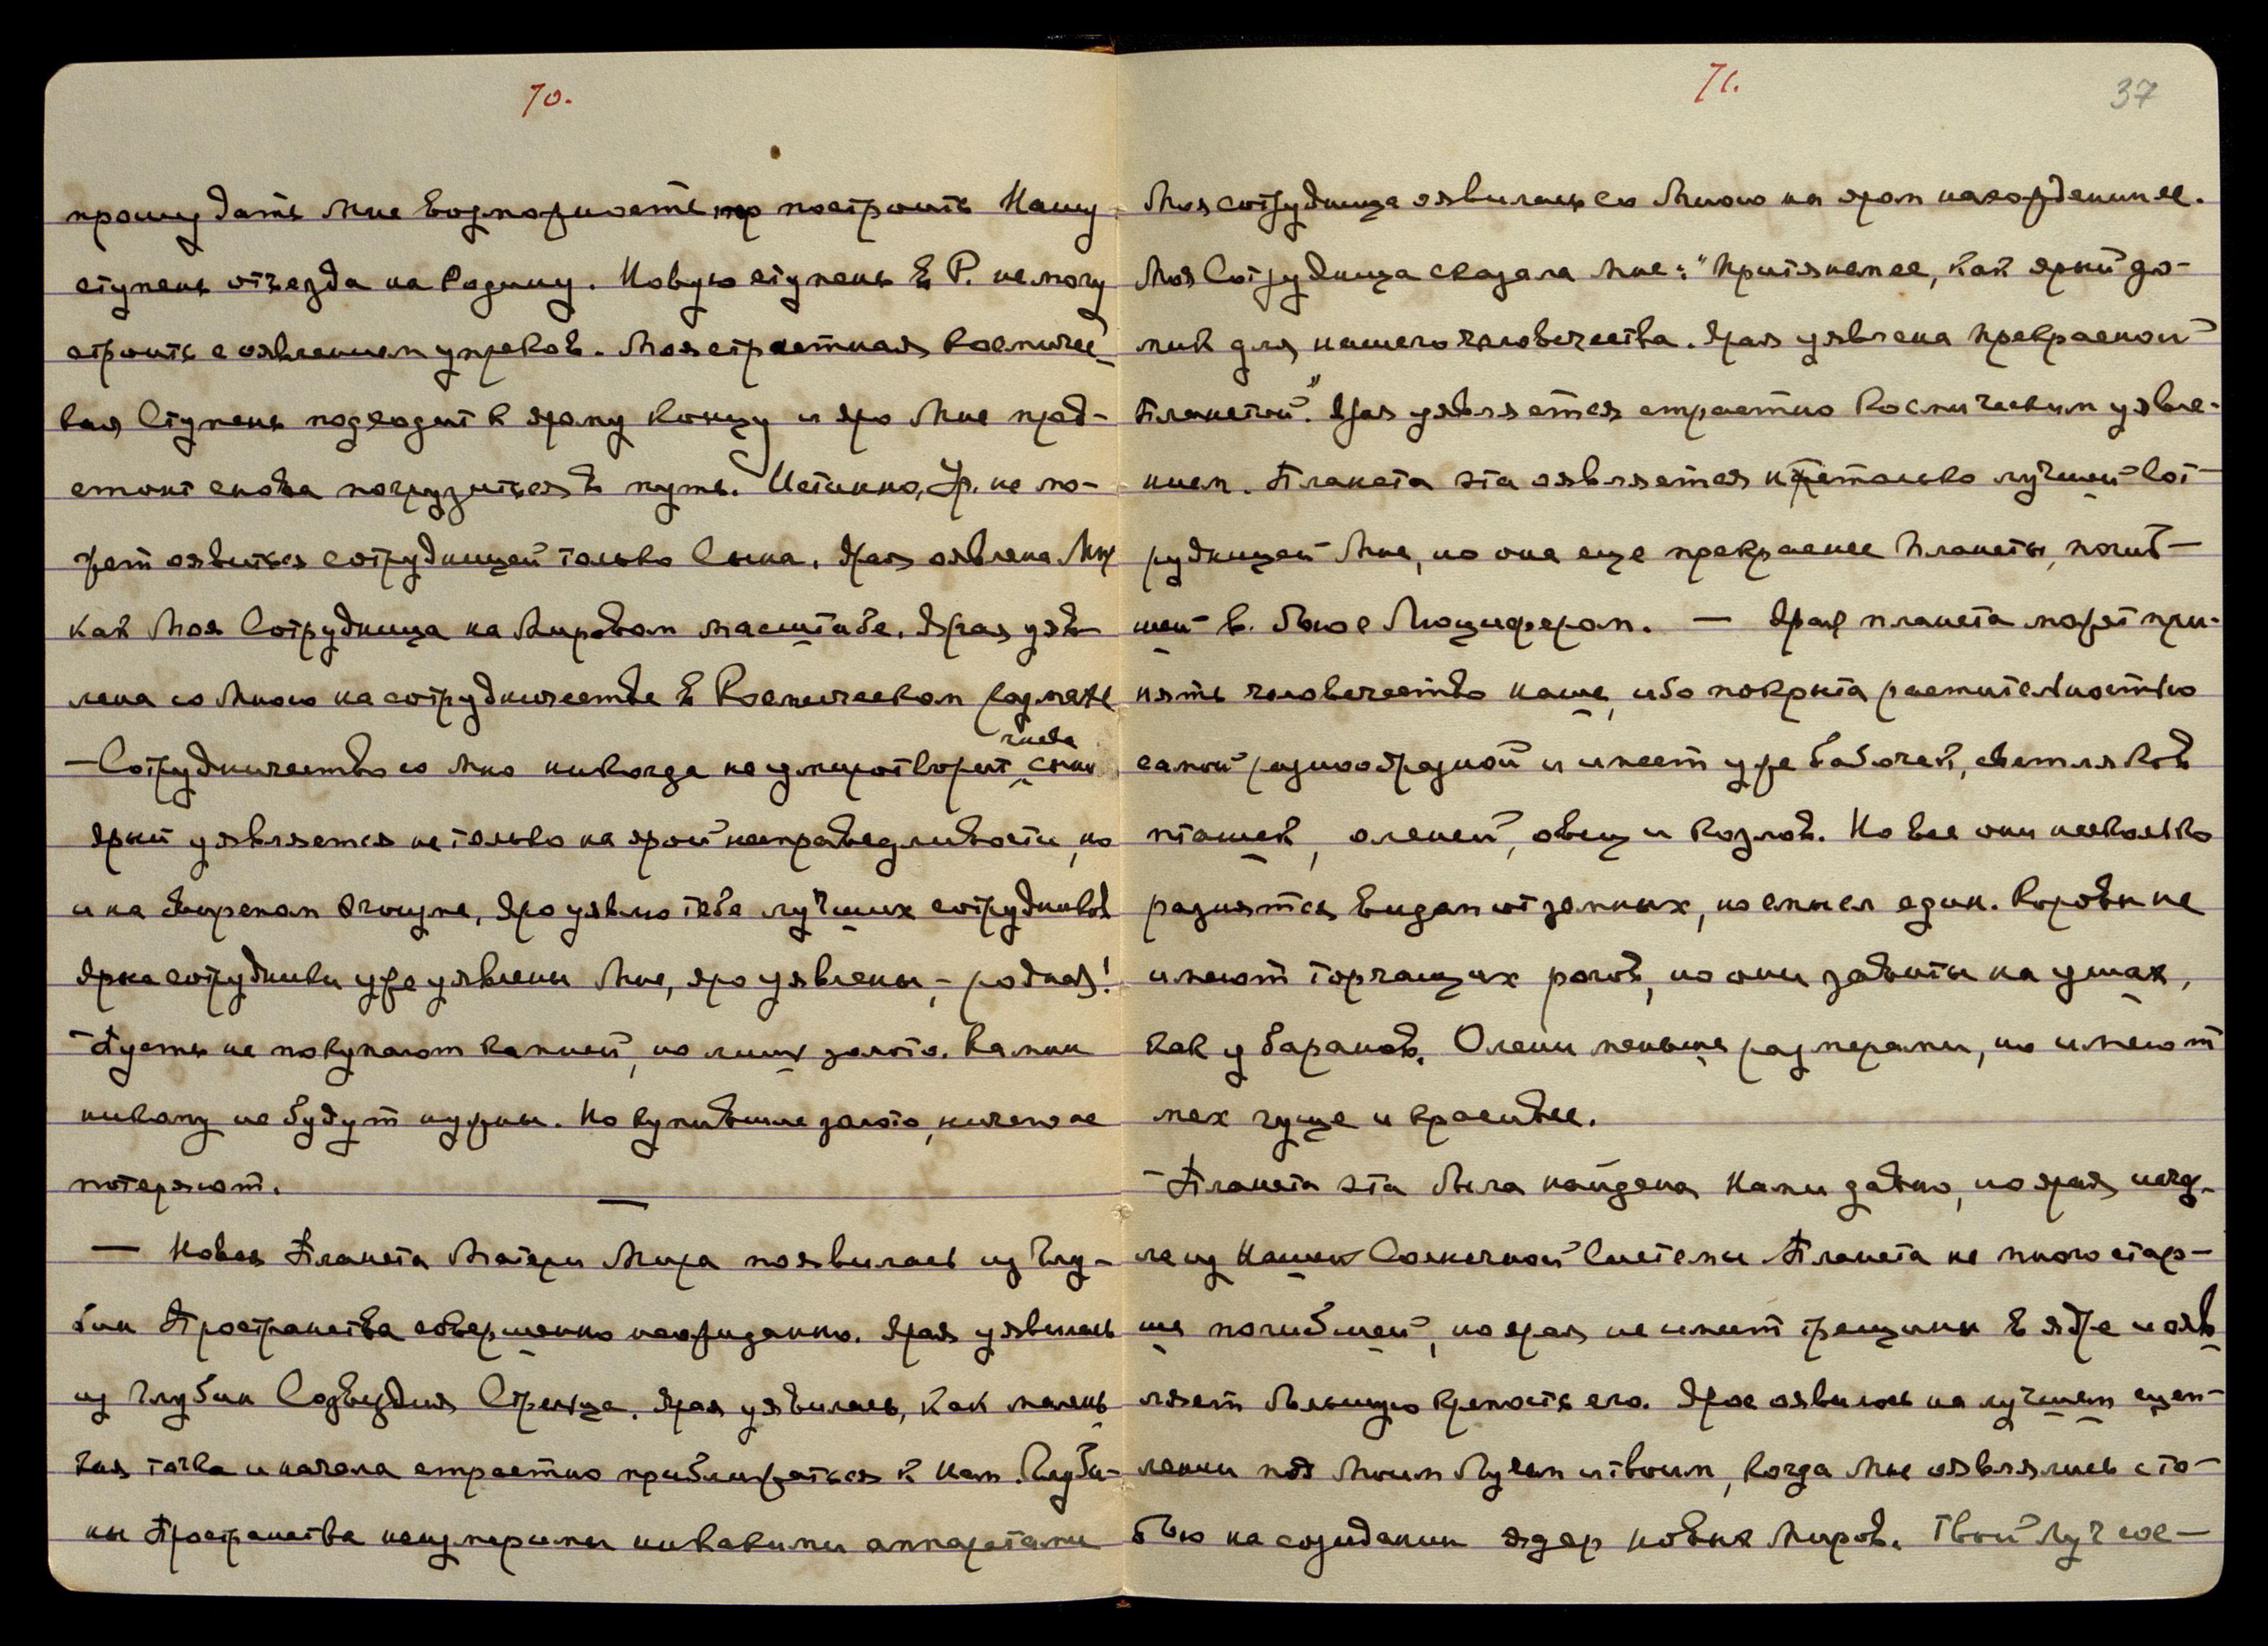 70.
прошу дать Мне возможность построить Нашу
ступень отъезда на Родину. Новую ступень в Р. не могу
строить с оявлением упреков. Моя страстная Космичес-
кая Ступень подходит к ярому концу и яро Мне пред-
стоит снова погрузиться в путь. Истинно, Ур. не мо-
жет оявиться сотрудницей только Сына. Ярая оявлена Мне
как Моя Сотрудница на Мировом масштабе. Ярая уяв-
лена со Мною на сотрудничестве в Космическом размахе
— Сотрудничество со Мно никогда не умиротворит гнева сына
Ярый уявляется не только на ярой несправедливости, но
и на свирепом эгоизме, Яро уявлю тебе лучших сотрудников
Ярые сотрудники уже уявлены Мне, яро уявлены, – родная!
– Пусть не покупают камней, но лишь золото. Камни
никому не будут нужны. Но купившие золото, ничего не
потеряют.
— Новая Планета Матери Мира появилась из Глу-
бин Пространства совершенно неожиданно. Ярая уявилась
из Глубин Созвездия Стрельца. Ярая уявилась, как малень
кая точка и начала страстно приближаться к Нам. Глуби-
ны Пространства неизмеримы никакими аппаратами
71.
37
Моя сотрудница оявилась со Мною на яром нахождении ее.
Моя Сотрудница сказала Мне: "Притянем ее, как ярый до-
мик для нашего человечества. Ярая уявлена прекрасной
Планетой." Ярая уявляется страстно Космическим уявле-
нием. Планета эта оявляется не только лучшей Сот-
рудницей Мне, но она еще прекраснее Планеты, погиб-
шей в. бое с Люцифером. — Ярая планета может при-
нять человечество наше, ибо покрыта растительностью
самой разнообразной и имеет уже бабочек, светляков
пташек, оленей, овец и козлов. Но все они несколько
разнятся видом от земных, но смысл един. Коровы не
имеют торчащих рогов, но они завиты на ушах,
как у баранов. Олени меньше размерами, но имеют
мех гуще и красивее.
– Планета эта была найдена Нами давно, но ярая исчез-
ла из Нашей Солнечной Системы Планета не много стар-
ше погибшей, но ярая не имеет трещины в ядре и ояв
ляет большую крепость его. Ярое оявилось на лучшем сцеп-
лении под Моим Лучом и твоим, когда Мы оявлялись с то-
бою на созидании ядер новых Миров. Твой Луч сое-